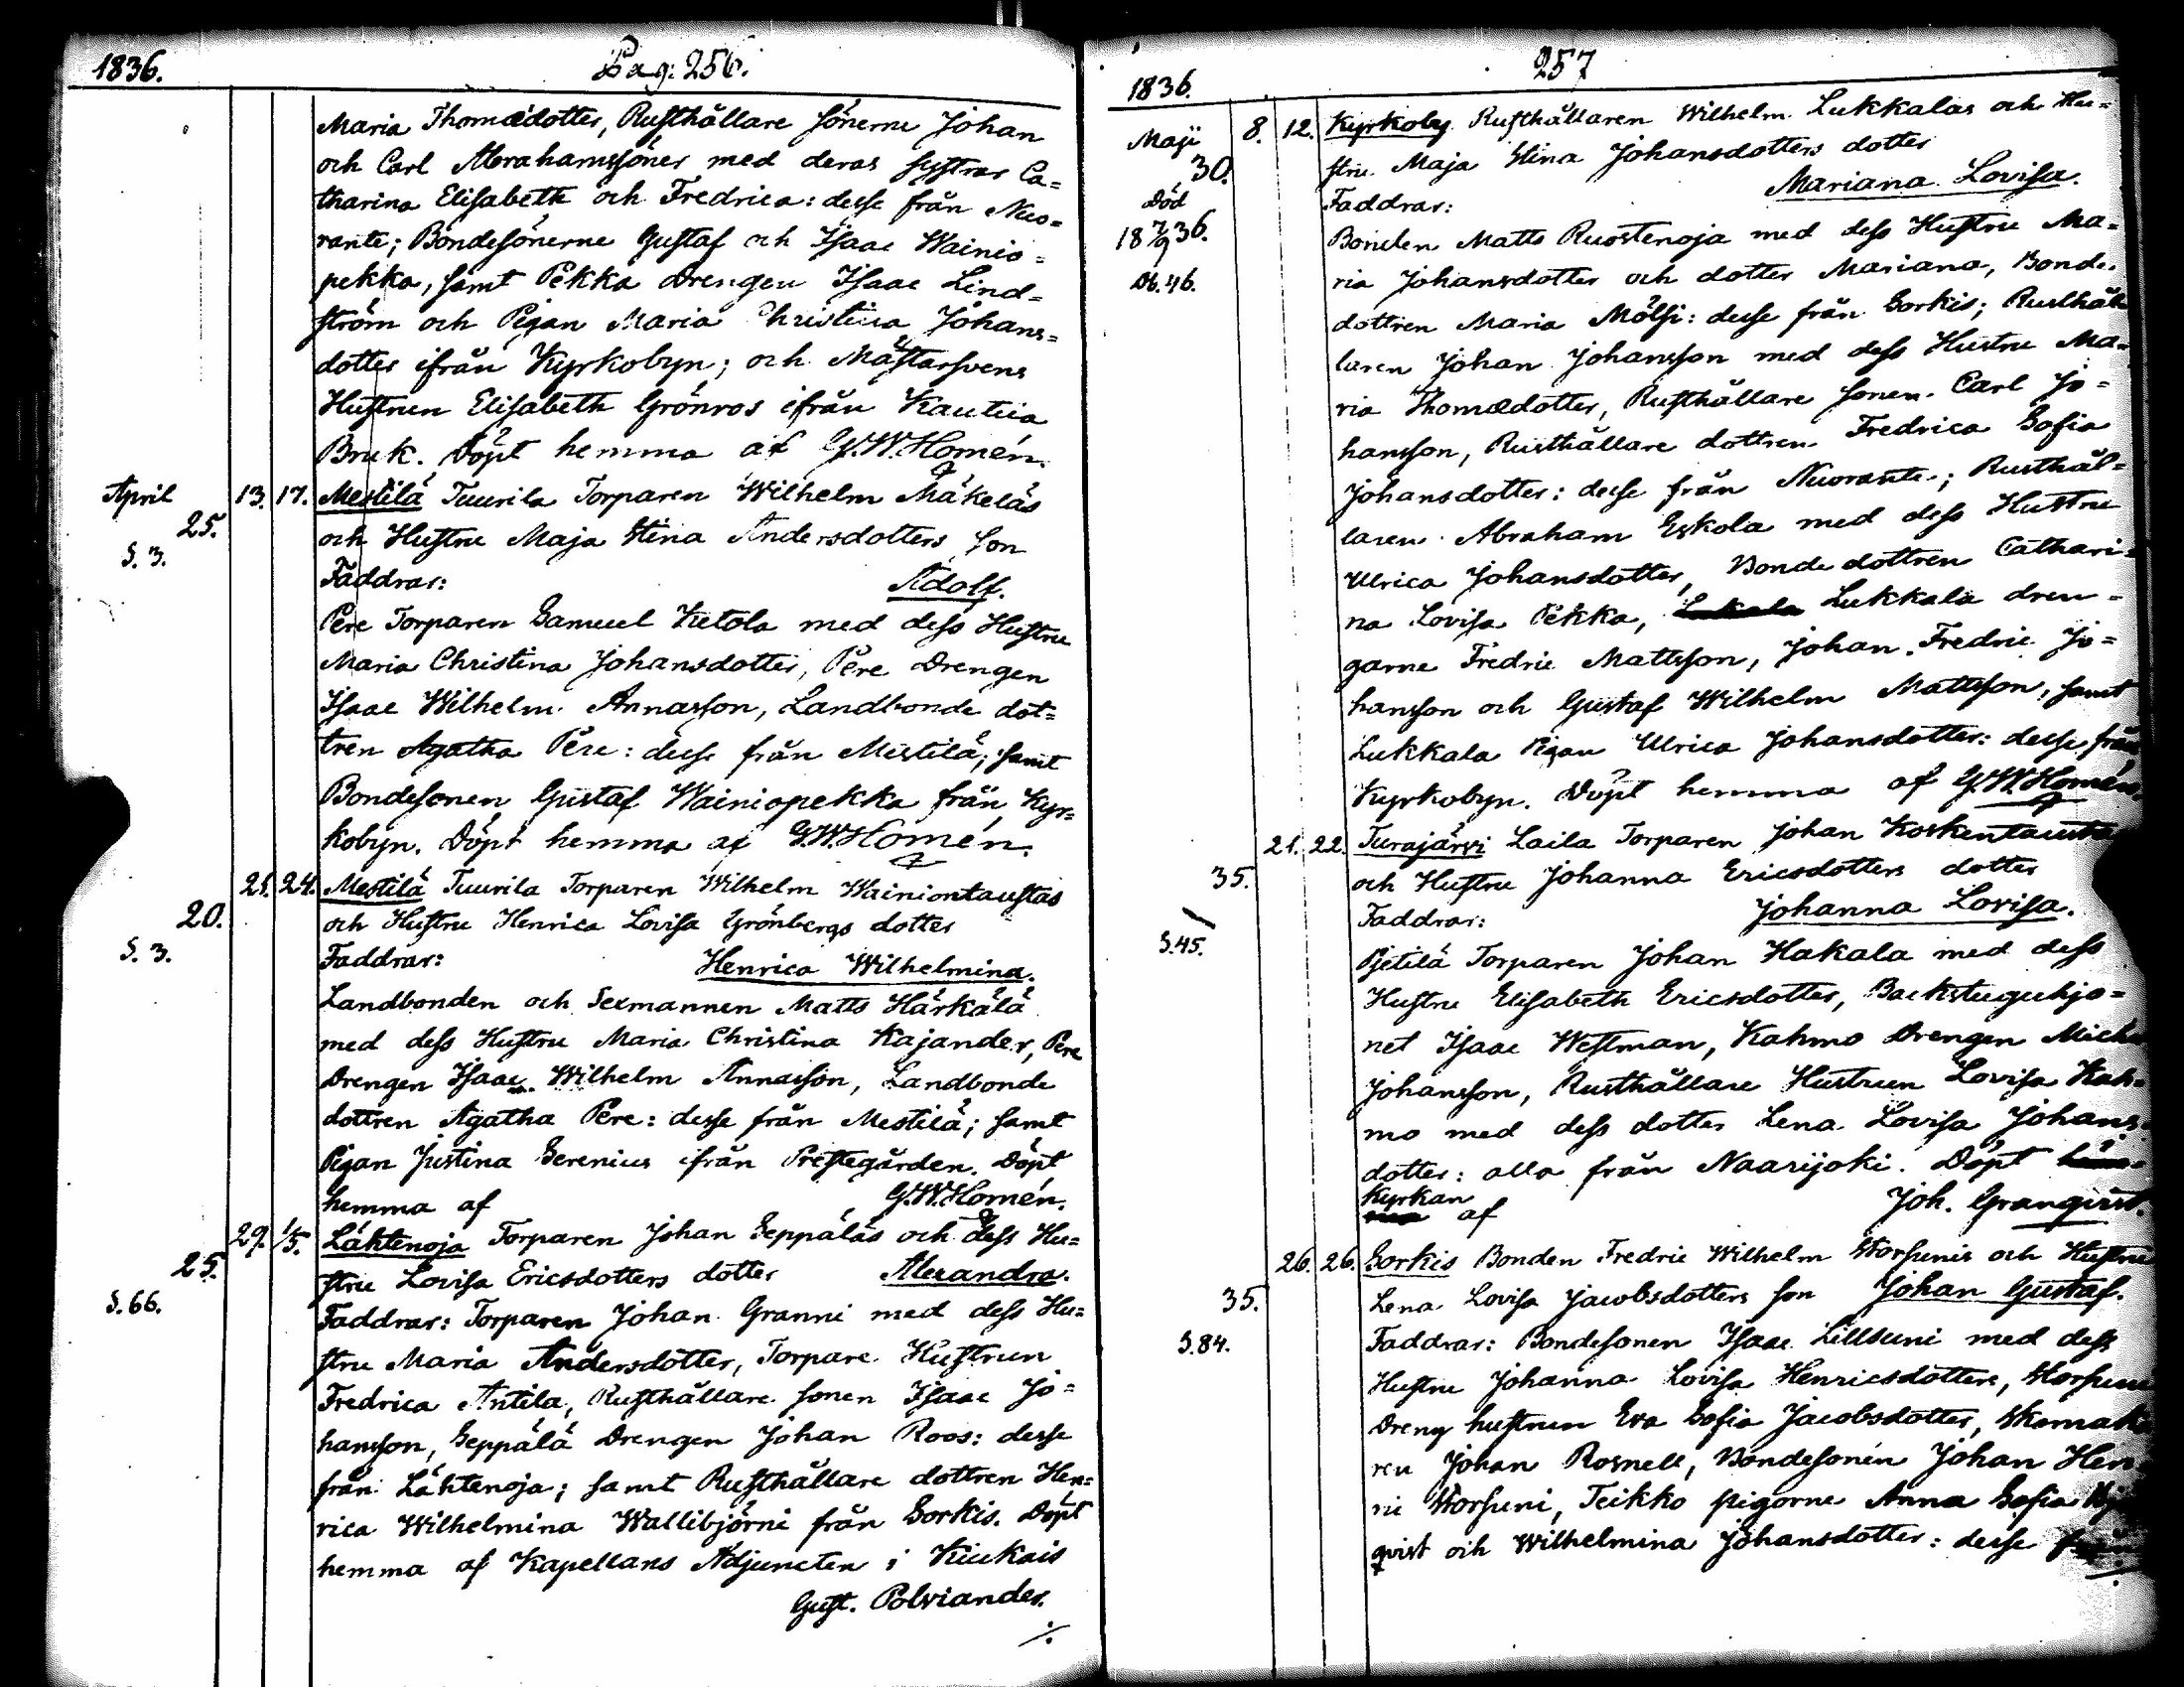 1836.
Pag: 256.
Maria Thomædotter, Rusthållare sönerne Johan
och Carl Abrahamssöner med deras systrar Ca=
tharina Elisabeth och Fredrica: desse från Nuo=
rante; Bondesönerne Gustaf och Isaac Wainio=
pekka, samt Pekka Drengen Isaac Lind=
ström och Pigan Maria Christina Johans=
dotter ifrån Kyrkobyn; och Mästarsvens
Hustrun Elisabeth Grönros ifrån Kautua
Bruk. Döpt hemma af G.W.Homén.
April
25.
S. 3.
13. 17. Mestilä Tuurila Torparen Wilhelm Mäkeläs
och Hustru Maja Stina Andersdotters son
Faddrar: Adolf.
Pere Torparen Samuel Ketola med dess Hustru
Maria Christina Johansdotter, Pere Drengen
Isaac Wilhelm Annasson, Landbonde dot=
tren Agatha Pere: desse från Mestilä; samt
Bondesonen Gustaf Wainiopekka från Kyr=
kobyn. Döpt hemma af G.W.Homén.
20.
S. 3.
21. 24. Mestilä Tuurila Torparen Wilhelm Wainiontaustas
och Hustru Henrica Lovisa Grönbergs dotter
Faddrar: Henrica Wilhelmina.
Landbonden och Sexmannen Matts Härkälä
med dess Hustru Maria Christina Kajander, Pere
Drengen Isaac Wilhelm Annasson, Landbonde
dottren Agatha Pere: desse från Mestilä; samt
Pigan Justina Serenius ifrån Prestegården. Döpt
hemma af G.W.Homén.
25.
S. 66.
29. 1/5. Lähtenoja Torparen Johan Seppäläs och dess Hu=
stru Lovisa Ericsdotters dotter Alexandra.
Faddrar: Torparen Johan Granni med dess Hu=
stru Maria Andersdotter, Torpare Hustrun
Fredrica Antila, Rusthållare sonen Isaac Jo=
hansson, Seppälä Drengen Johan Roos: desse
från Lähtenoja; samt Rusthållare dottren Hen=
rica Wilhelmina Wallibjörni från Sorkis. Döpt
hemma af Kapellans Adjuncten i Kiukais
Gust. Polviander.
./.
257
1836.
Maji
30.
Död
18 7/9 36.
Db. 46.
8. 12. Kyrkoby Rusthållaren Wilhelm Lukkalas och Hu=
stru Maja Stina Johansdotters dotter
Mariana Lovisa.
Faddrar:
Bonden Matts Ruostenoja med dess Hustru Ma=
ria Johansdotter och dotter Mariana, Bonde
dottren Maria Mölsi: desse från Sorkis; Rusthål
laren Johan Johansson med dess Hustru Ma=
ria Thomædotter, Rusthållare sonen Carl Jo=
hansson, Rusthållare dottren Fredrica Sofia
Johansdotter: desse från Nuorante; Rusthål=
laren Abraham Eskola med dess Hustru
Ulrica Johansdotter, Bonde dottren Cathari=
na Lovisa Pekka, Lukkala dren=
garne Fredric Mattsson, Johan Fredric Jo=
hansson och Gustaf Wilhelm Mattsson, samt
Lukkala Pigan Ulrica Johansdotter: desse från
Kyrkobyn. Döpt hemma af G.W.Homén.
35.
S. 45.
21. 22. Turajärvi Laila Torparen Johan Koskentausta
och Hustru Johanna Ericsdotters dotter
Faddrar: Johanna Lovisa.
Pjetilä Torparen Johan Hakala med dess
Hustru Elisabeth Ericsdotter, Backstuguhjo=
net Isaac Westman, Kahmo Drengen Mich
Johansson, Rusthållare Hustrun Lovisa Kah=
mo med dess dotter Lena Lovisa Johans=
dotter: alla från Naarijoki. Döpt
Kyrkan af Joh. Granqvist.
35.
S. 84.
26. 26. Sorkis Bonden Fredric Wilhelm Storsunis och Hustru
Lena Lovisa Jacobsdotters son Johan Gustaf.
Faddrar: Bondesonen Isaac Lillsuni med dess
Hustru Johanna Lovisa Henricsdotter, Storsuni
Dreng hustrun Eva Sofia Jacobsdotter, Skomaka
ren Johan Rosnell, Bondesonen Johan Hen
ric Storsuni, Teikko pigorne Anna Sofia
qvist och Wilhelmina Johansdotter: desse från
./.